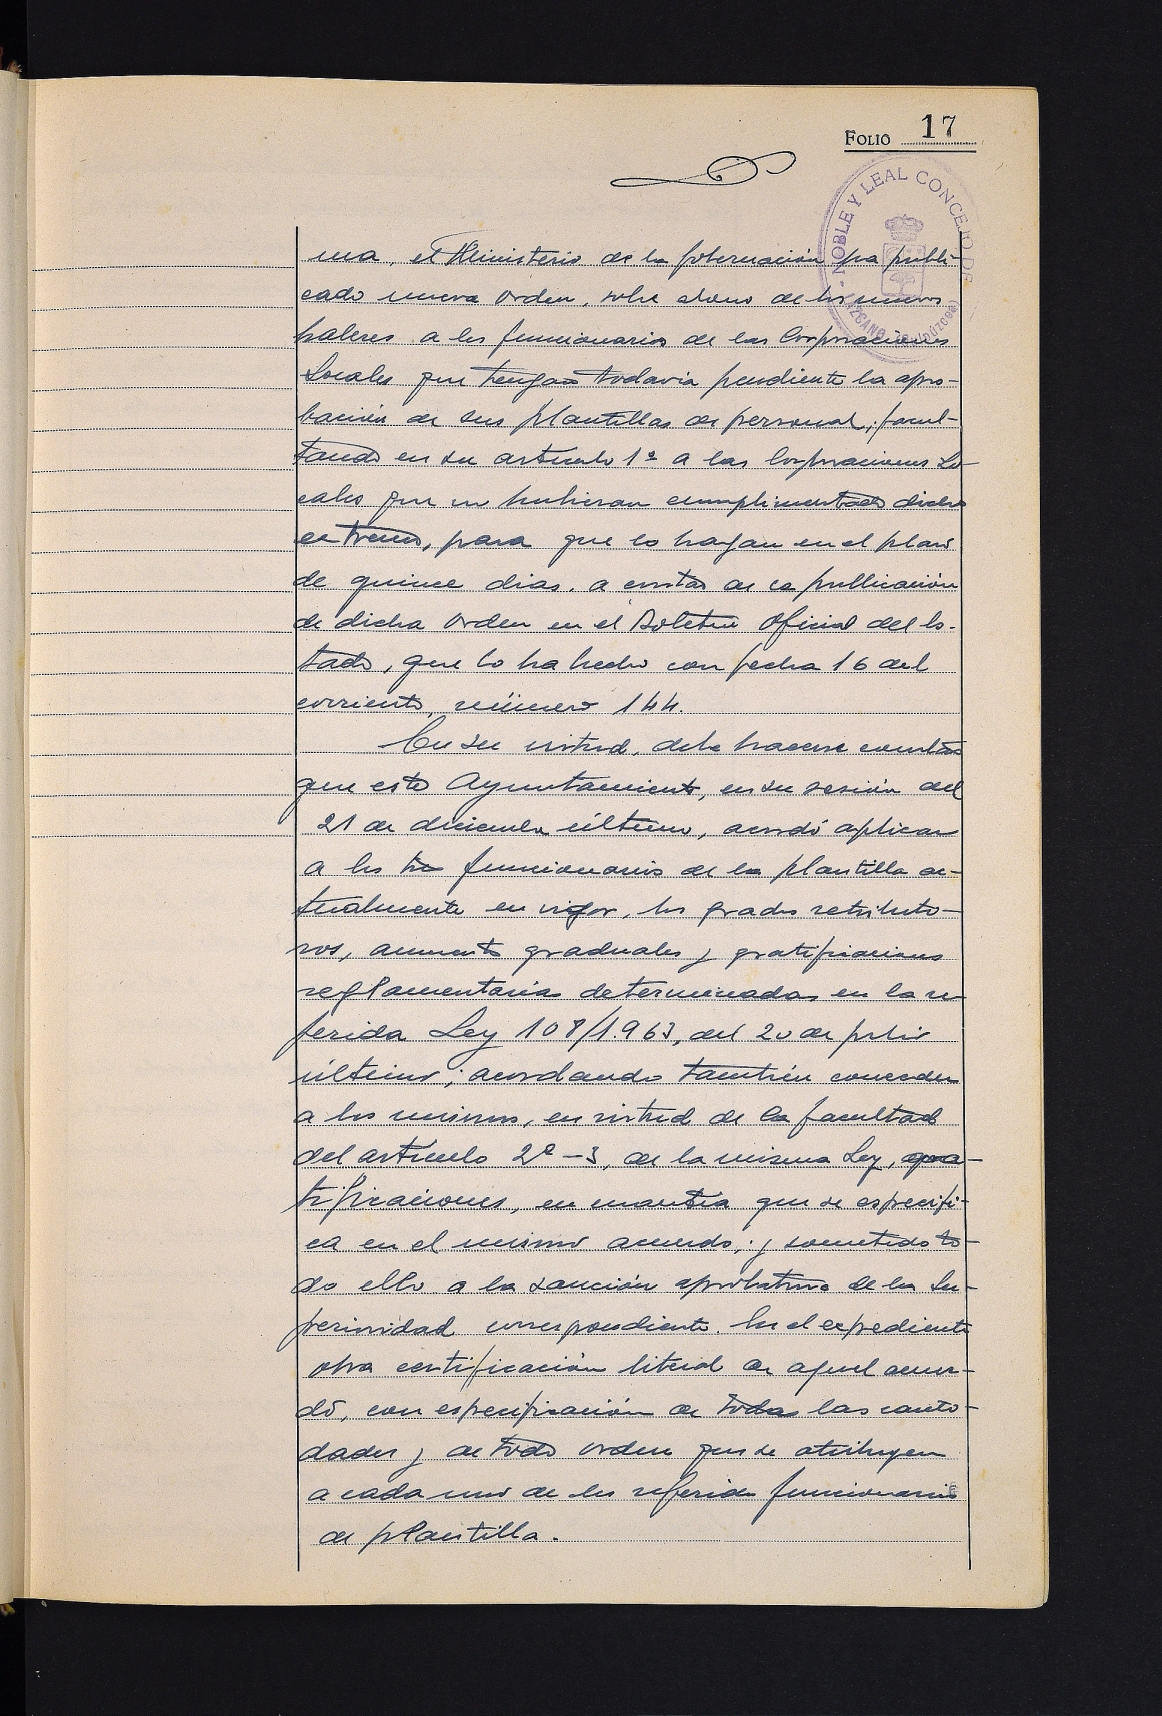 FOLIO 17
NOBLE Y LEAL CONCEJO DE
IZCANO (Guipúzcoa)
ma, el Ministerio de la Gobernación ha publi-
cado nueva Orden, sobre abono de los nuevos
haberes a los funcionarios de las Corporaciones
Locales que tengan todavia pendiente la apro-
bación de sus plantillas de personal; facul-
tando en su artículo 1º a las Corporaciones Lo-
cales que no hubieran cumplimentado dicho
extremo, para que lo hagan en el plazo
de quince dias, a contar de la publicación
de dicha Orden en el Boletin Oficial del Es-
tado, que lo ha hecho con fecha 16 del
corriente, número 144.
En su virtud, debe hacerse constar
que este Ayuntamiento, en su sesión del
21 de diciembre último, acordó aplicar
a los funcionarios de la plantilla ac-
tualmente en vigor, los grados retributi-
vos, aumentos graduales y gratificaciones
reglamentarias determinadas en la re-
ferida Ley 108/1.963, del 20 de julio
último; acordando también conceder
a los mismos, en virtud de la facultad
del artículo 2º-3, de la misma Ley, gra-
tificaciones, en cuantía que se especifi-
ca en el mismo acuerdo; y sometido to-
do ello a la sanción aprobatoria de la Su-
perioridad correspondiente. En el expediente
obra certificación literal de aquel acuer-
do, con especificación de todas las canti-
dades y de todo orden que se atribuyen
a cada uno de los referidos funcionarios
de plantilla.